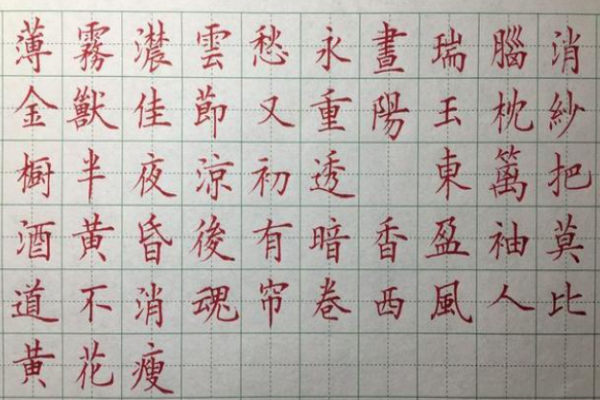 薄霧濃雲愁永晝瑞腦消
金獸佳節又重陽玉枕紗
橱半夜涼初透 東篱把
酒黃昏後有暗香盈袖莫
道不消魂帘卷西風人比
黃花瘦